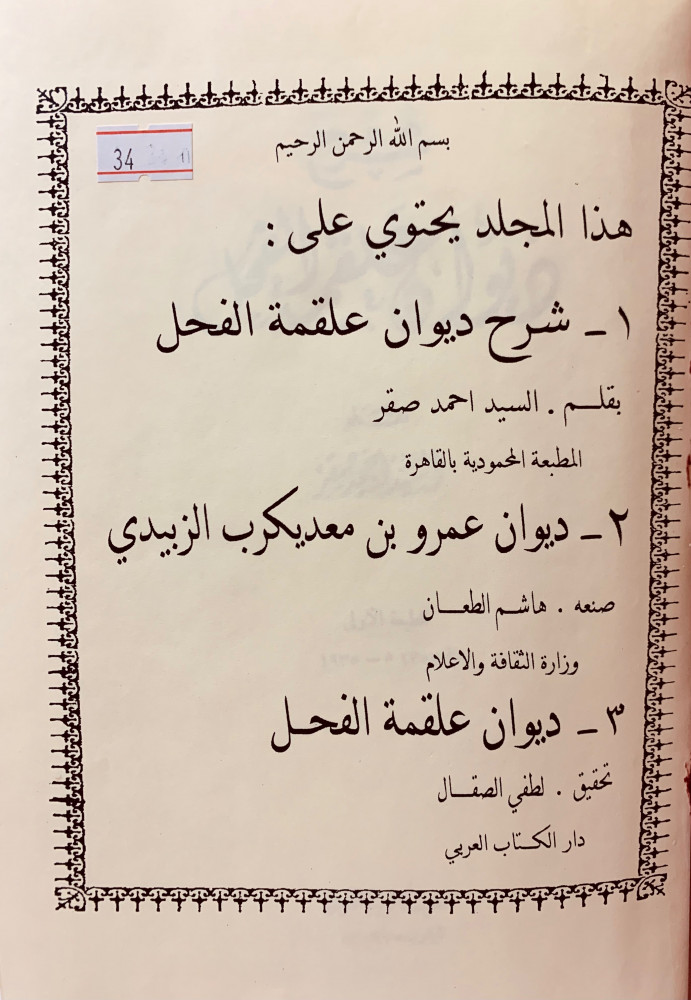 بسم الله الرحمن الرحيم
34
هذا المجلد يحتوي على :
١ - شرح ديوان علقمة الفحل
بقلـــم . السيد احمد صقر
المطبعة المحمودية بالقاهرة
٢ - ديوان عمرو بن معديكرب الزبيدي
صنعه . هاشم الطعـــان
وزارة الثقافة والاعلام
٣ - ديوان علقمة الفحـل
تحقيق . لطفي الصقـــال
دار الكـتاب العربي